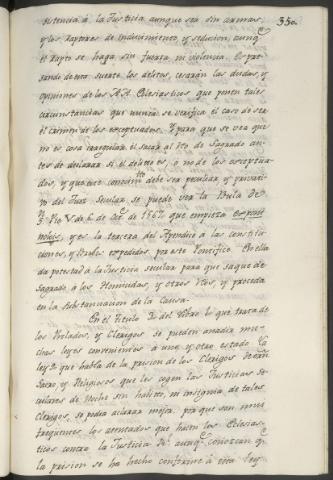 350
sistencia á la Justicia aunque sea sin armas,
y los Raptores de induzimiento, y seducion, aunq.e
el Rapto se haga sin fuerza ni violencia. Expre-
sando de esta suerte los delitos, cesarán las dudas, y
opiniones de los A.A. Eclesiasticos que ponen tales
circunstancias que nunca se verifica el caso de ser
el crimen de los exceptuados. Y para que se vea que
no es cosa irregular el sacar al Reo de Sagrado an-
tes de declarar si el delito es, o no de los exceptua-
dos, y que este conocim.to debe ser peculiar, y privati-
vo del Juez Secular, se puede ver la Bula de
S. Pio V. de 6. de 1567 que empieza Ex poni
nobis, y es la tercera del Apendice á las constitu-
ciones, y Bulas expedidas por este Pontifice. En ella
da potestad á la Justicia secular para que saque de
Sagrado á los Homicidas, y otros Reos, y proceda
en la Substanciacion de la Causa.
En el Titulo 3. del Libro 1.o que trata de
los Prelados, y Clerigos se pueden añadir mu-
chas leyes convenientes á uno, y otro estado. La
ley 2. que habla de la prision de los Clerigos de orn.
Sacro, y Religiosos que les cogen las Justicias Se-
culares de Noche sin habito, ni insignia de tales
Clerigos, se podia aclarar mejor, por que son mui
freqüentes los atentados que hacen los Eclesias-
ticos contra la Justicia R.l aunq.e conozcan q.e
la prision se ha hecho conforme á esta ley